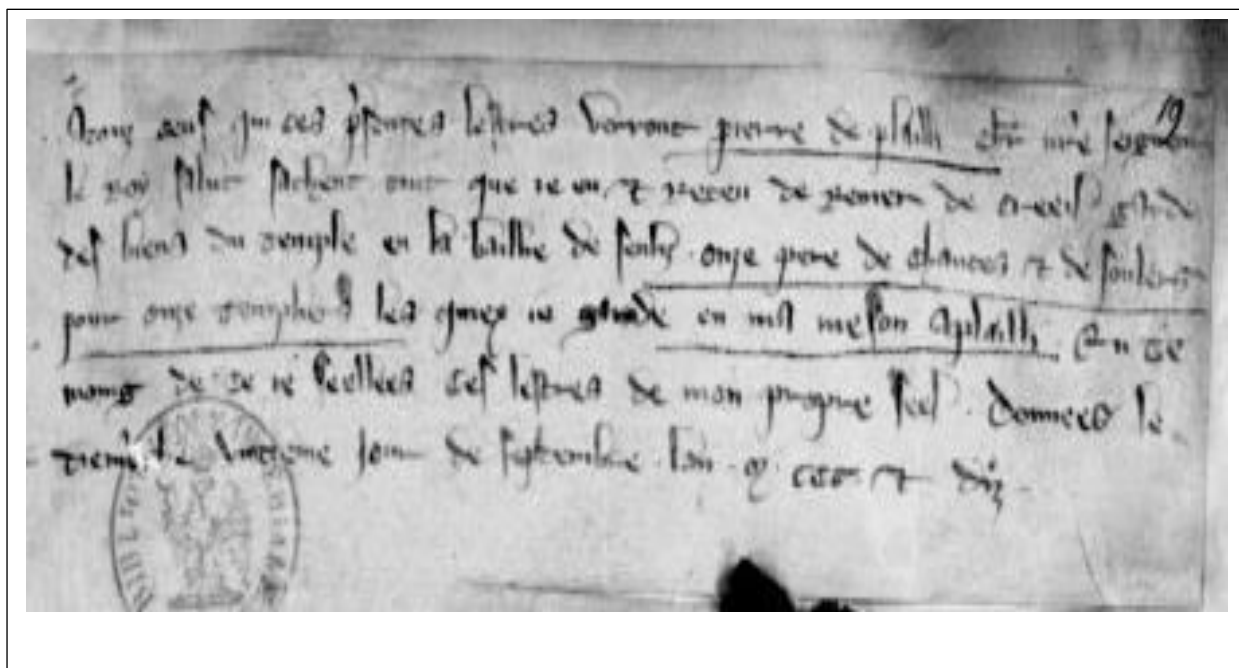 touz ceus qui ces p'sentes lettres verront pierre de plailli nre seigneur
le roy salut sachent tuit que ie eu et receu de renier de creeil garde
des biens du temple en la baillie de senliz . onze peire de chauces et de soulers
pour onze templiers les quiex ie garde en ma meson a plailli . En tes
moing de ce ie seellees ces lettres de mon propre seel . Donnees le
vintieme jour de septembre lan . m . ccc . et diz
19